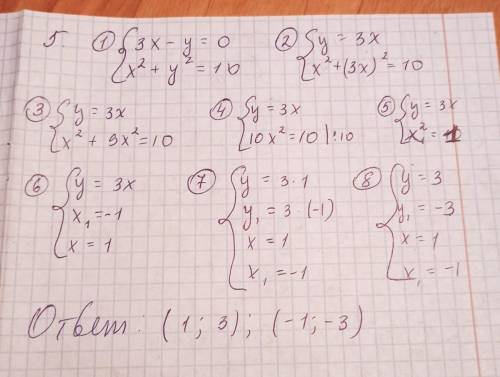 5. ① { 3x - y = 0
x² + y² = 10
② { y = 3x
x² + (3x)² = 10
③ { y = 3x
x² + 9x² = 10
④ { y = 3x
10x² = 10 | : 10
⑤ { y = 3x
x² = 1
⑥ { y = 3x
x₁ = -1
x = 1
⑦ { y = 3 · 1
y₁ = 3 · (-1)
x = 1
x₁ = -1
⑧ { y = 3
y₁ = -3
x = 1
x₁ = -1
Ответ: (1; 3); (-1; -3)